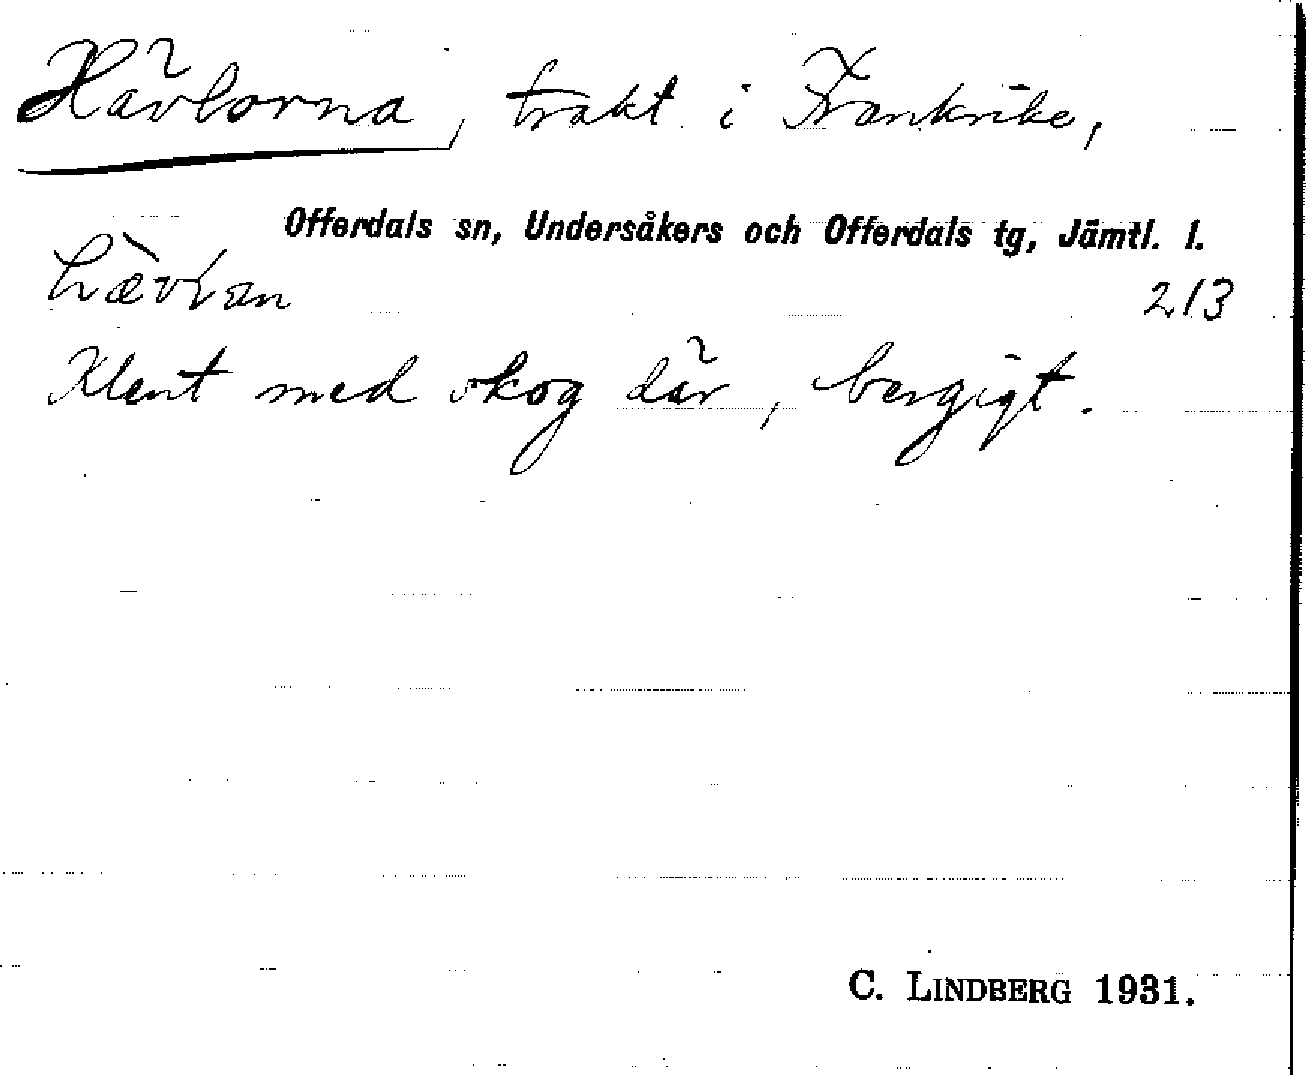 Hävlorna, trakt i Frankrike,
Offerdals sn, Undersåkers och Offerdals tg, Jämtl. l.
hævlan
213
Klent med skog där, bergigt.
C. LINDBERG 1931.